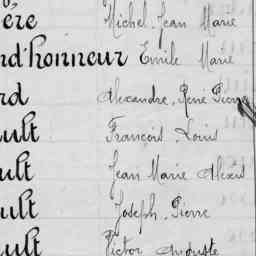 ère Michel Jean Marie
nd'honneur Emile Marie
rd Alexandre René Pierre
ult François Louis
ult Jean Marie Alexis
ult Joseph Pierre
ult Victor Auguste